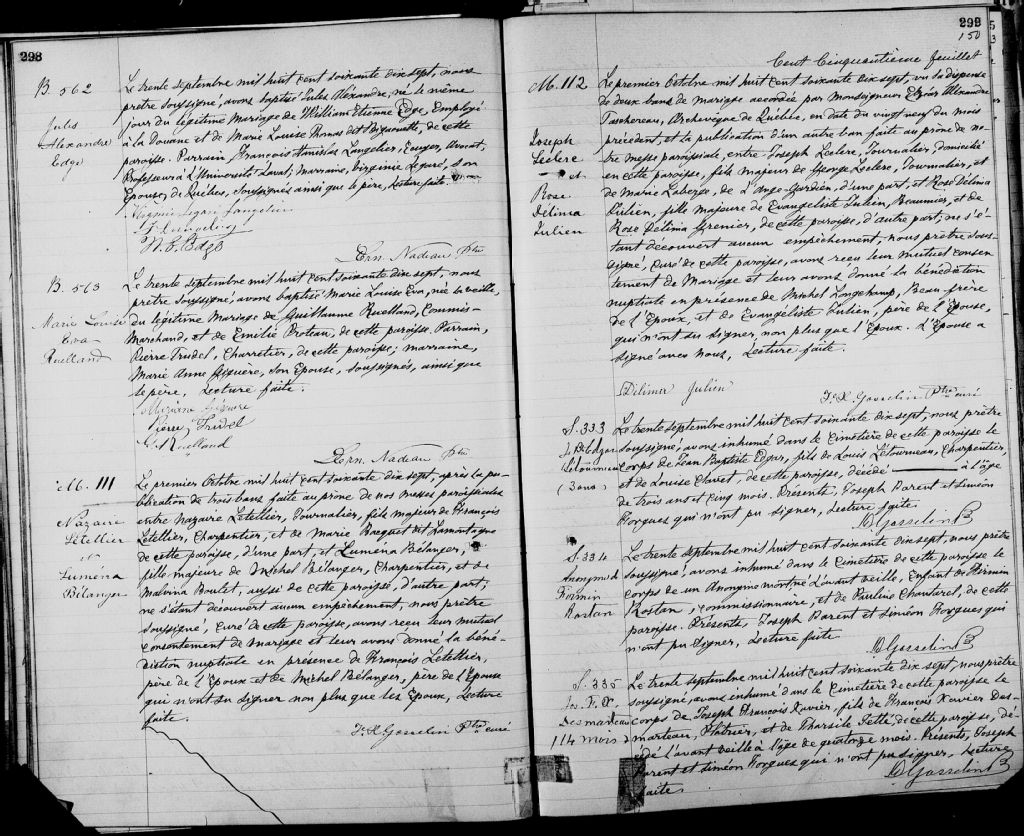 298
B. 562
Jules
Alexandre
Edge
Le trente septembre mil huit cent soixante dix sept, nous
prêtre soussigné, avons baptisé Jules Alexandre, né le même
jour du légitime Mariage de William Etienne Edge, Employé
à la Douane et de Marie Louise Thomas dit Bigaouette, de cette
paroisse. Parrain, François Stanislas Langelier, Ecuyer, Avocat,
Professeur à l'Université Laval; marraine, Virginie Legaré, son
Epouse, de Québec, soussignés ainsi que le père, Lecture faite.
Langelier
F. Langelier
W. E. Edge
Ern. Nadeau Ptre
B. 563
Marie Louise
Eva
Ruelland
Le trente septembre mil huit cent soixante dix sept, nous
prêtre soussigné, avons baptisé Marie Louise Eva, née la veille,
du légitime Mariage de Guillaume Ruelland, Commis-
Marchand, et de Emilie Proteau, de cette paroisse. Parrain,
Pierre Trudel, Charretier, de cette paroisse; marraine,
Marie Anne Giguere, son Epouse, soussignés, ainsi que
le père, Lecture faite.
Giguere
Pierre Trudel
G. Ruelland
Ern. Nadeau Ptre
M. 111
Nazaire
Letellier
et
Luména
Bélanger
Le premier Octobre mil huit cent soixante dix sept, après la pu-
blication de trois bans faite au prône de nos messes paroissiales
entre Nazaire Letellier, Journalier, fils majeur de François
Letellier, Charpentier, et de Marie Paquet dit Lamontagne
de cette paroisse, d'une part, et Luména Bélanger,
fille majeure de Michel Bélanger, Charpentier, et de
Malvina Boulet, aussi de cette paroisse, d'autre part,
ne s'étant découvert aucun empêchement, nous prêtre
soussigné, curé de cette paroisse, avons reçu leur mutuel
consentement de mariage et leur avons donné la béné-
diction nuptiale en présence de François Letellier,
père de l'Epoux et de Michel Bélanger, père de l'Epouse
qui n'ont su signer non plus que les Epoux, Lecture
faite.
F. X. Gosselin Ptre curé
299
150
Cent Cinquantième feuillet
M. 112
Joseph
Leclerc
et
Rose
Délima
Julien
Le premier Octobre mil huit cent soixante dix sept, vu la dispense
de deux bans de mariage accordée par Monseigneur Elzéar Alexandre
Taschereau, Archevêque de Québec, en date du vingt neuf du mois
précédent, et la publication d'un autre ban faite au prône de no-
tre messe paroissiale, entre Joseph Leclerc, Journalier, domicilié
en cette paroisse, fils majeur de George Leclerc, Journalier, et
de Marie Laberge, de L'Ange Gardien, d'une part, et Rose Délima
Julien, fille majeure de Evangeliste Julien, Beaumier, et de
Rose Délima Grenier, de cette paroisse, d'autre part; ne s'é-
tant découvert aucun empêchement, nous prêtre sous-
signé, curé de cette paroisse, avons reçu leur mutuel consen-
tement de Mariage et leur avons donné la bénédiction
nuptiale en présence de Michel Longchamp, Beau-frère
de l'Epoux, et de Evangeliste Julien, père de l'Epouse,
qui n'ont su signer, non plus que l'Epoux. L'Epouse a
signé avec nous, Lecture faite.
Délima Julien
F. X. Gosselin Ptre curé
S. 333
J. B. Edgar
Letourneau
(3 ans)
Le trente septembre mil huit cent soixante dix sept, nous prêtre
soussigné, avons inhumé dans le Cimetière de cette paroisse le
corps de Jean Baptiste Edgar, fils de Louis Létourneau, Charpentier,
et de Louise Clavet, de cette paroisse, décédé à l'âge
de trois ans et cinq mois. Présents, Joseph Parent et Siméon
Forgues qui n'ont pu signer, Lecture faite.
D. Gosselin Ptre
S. 334
Anonyme
Firmin
Rostan
Le trente septembre mil huit cent soixante dix sept, nous prêtre
soussigné, avons inhumé dans le Cimetière de cette paroisse le
corps de un Anonyme mort né l'avant veille, Enfant de Firmin
Rostan, commissionnaire, et de Pauline Chantrel, de cette
paroisse. Présents, Joseph Parent et Siméon Forgues qui
n'ont pu signer, Lecture faite
D. Gosselin Ptre
S. 335
Jos. F. X.
Desmarteau
114 mois
Le trente septembre mil huit cent soixante dix sept, nous prêtre
soussigné, avons inhumé dans le Cimetière de cette paroisse le
corps de Joseph François Xavier, fils de François Xavier Des-
marteau, Plâtrier, et de Tharsile Petté de cette paroisse, dé-
cédé l'avant veille à l'âge de quatorze mois. Présents, Joseph
Parent et Siméon Forgues qui n'ont pu signer, Lecture
faite.
D. Gosselin Ptre